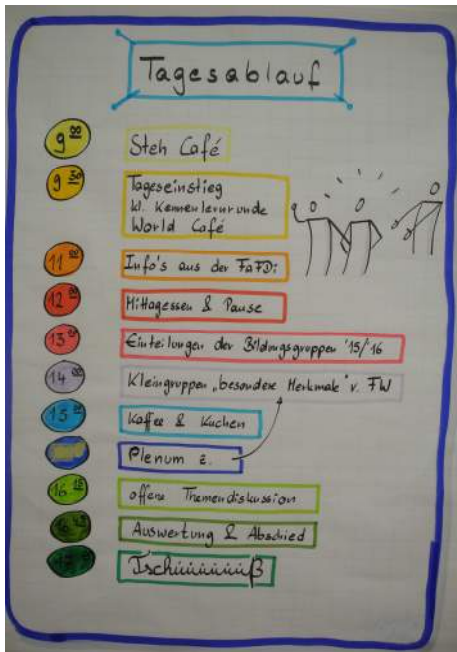 Tagesablauf
9 00
Steh Café
9 30
Tageseinstieg
kl. Kennenlernrunde
World Café
11 00
Info's aus der FaFDi
12 00
Mittagessen & Pause
13
Einteilungen der Bildungsgruppen '15/'16
14
Kleingruppen „besondere Merkmale" v. FW
15
Kaffee & Kuchen
Plenum z.
16 15
offene Themendiskussion
Auswertung & Abschied
Tschüüüüüüß